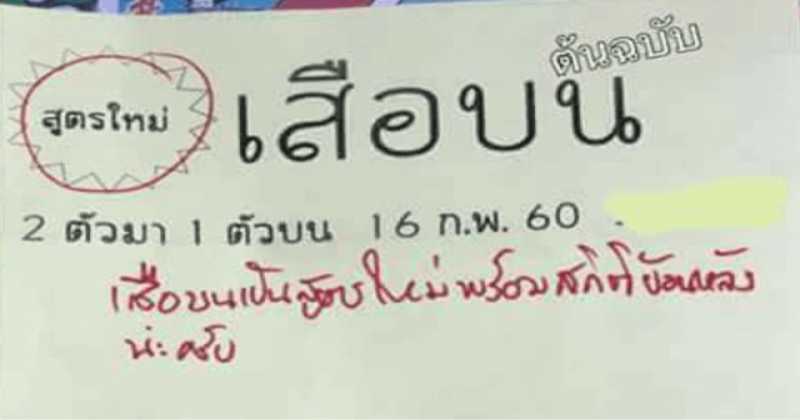 ต้นฉบับ
สูตรใหม่
เสือบน
2 ตัวมา 1 ตัวบน 16 ก.พ. 60
เสือบนเป็นสูตรใหม่พร้อมสถิติย้อนหลัง
น่ะครับ